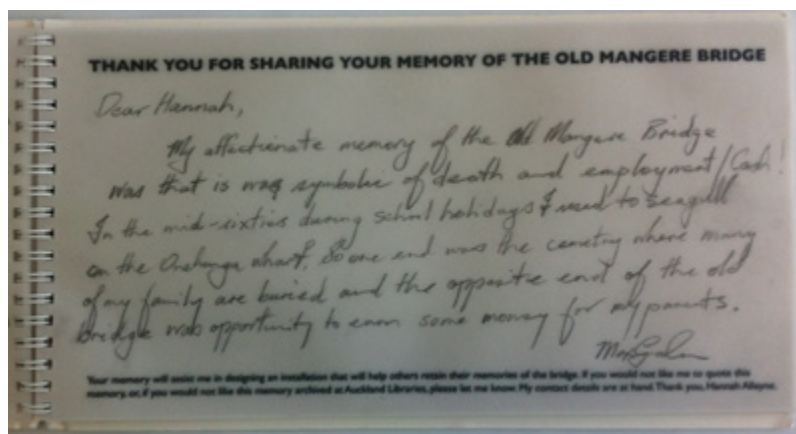 THANK YOU FOR SHARING YOUR MEMORY OF THE OLD MANGERE BRIDGE
Dear Hannah,
My affectionate memory of the Old Mangere Bridge
was that is was symbolic of death and employment/Cash!
In the mid-sixties during school holidays I used to seagull
on the Onehunga wharf. So one end was the cemetry where many
of my family are buried and the opposite end of the old
bridge was opportunity to earn some money for my parents.
Your memory will assist me in designing an installation that will help others retain their memories of the bridge. If you would not like me to quote this
memory, or, if you would not like this memory archived at Auckland Libraries, please let me know. My contact details are at hand. Thank you, Hannah Alleyne.